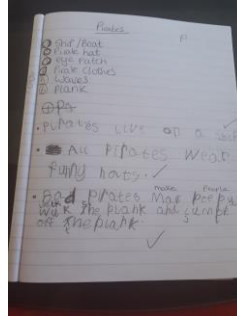 Pirates
Ship/Boat
Pirate hat
eye patch
Pirate clothes
Waves
Plank
Pirates Live on a
All Pirates Wear
funny hats.
Bad pirates Mak
make People
walk the plank and
off the plank